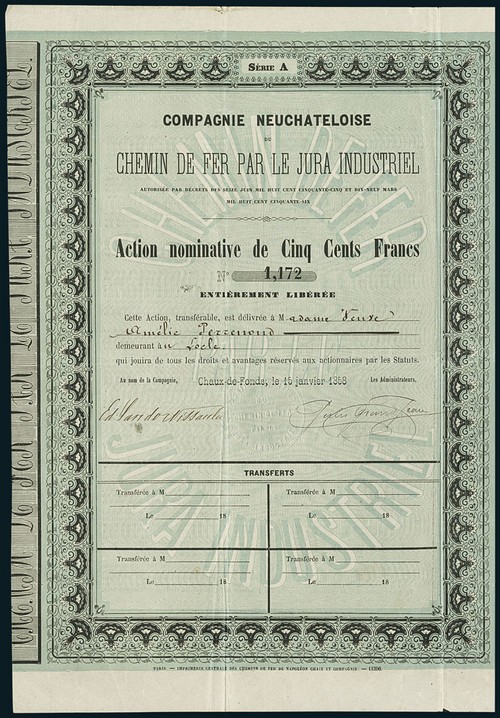 SÉRIE A
COMPAGNIE NEUCHATELOISE
DU
CHEMIN DE FER PAR LE JURA INDUSTRIEL
AUTORISÉE PAR DÉCRETS DES SEIZE JUIN MIL HUIT CENT CINQUANTE-CINQ ET DIX-NEUF MARS
MIL HUIT CENT CINQUANTE-SIX
Action nominative de Cinq Cents Francs
N° 1,172
ENTIÈREMENT LIBÉRÉE
Cette Action, transférable, est délivrée à Madame Veuve
Amélie Perrenoud
demeurant au Locle
qui jouira de tous les droits et avantages réservés aux actionnaires par les Statuts.
Au nom de la Compagnie, Chaux-de-Fonds, le 15 janvier 1858 Les Administrateurs,
TRANSFERTS
Transférée à M
Le 18
Transférée à M
Le 18
Transférée à M
Le 18
Transférée à M
Le 18
PARIS. — IMPRIMERIE CENTRALE DES CHEMINS DE FER DE NAPOLÉON CHAIX ET COMPAGNIE.
CHEMIN DE FER
JURA INDUSTRIEL